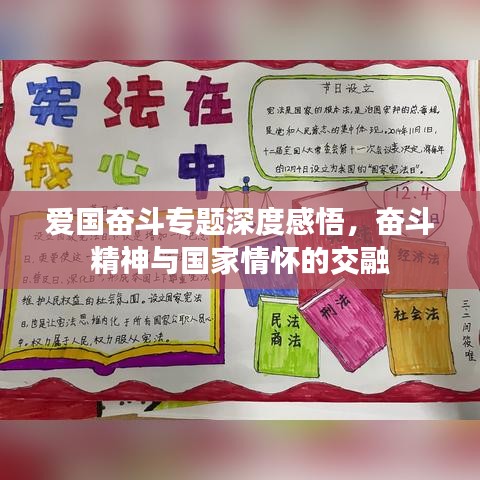 宪法在
我心中
节日设立
宪法是国家的根本法，是治国安邦的总章程，
是党和人民意志的集中体现。2014年11月1日，
十二届全国人大常委会第十一次会议表决决定，将每年
的12月4日设立为我国的“国家宪法日”。
12.4
爱国奋斗专题深度感悟，奋斗
精神与国家情怀的交融
经济法
维护人民权益的社会氛围。设立国家宪法
日，也是让宪法思维内化于所有国家公职人员心
中。权力属于人民，权力服从宪法。
民法
商法
刑法
社会法
三·二